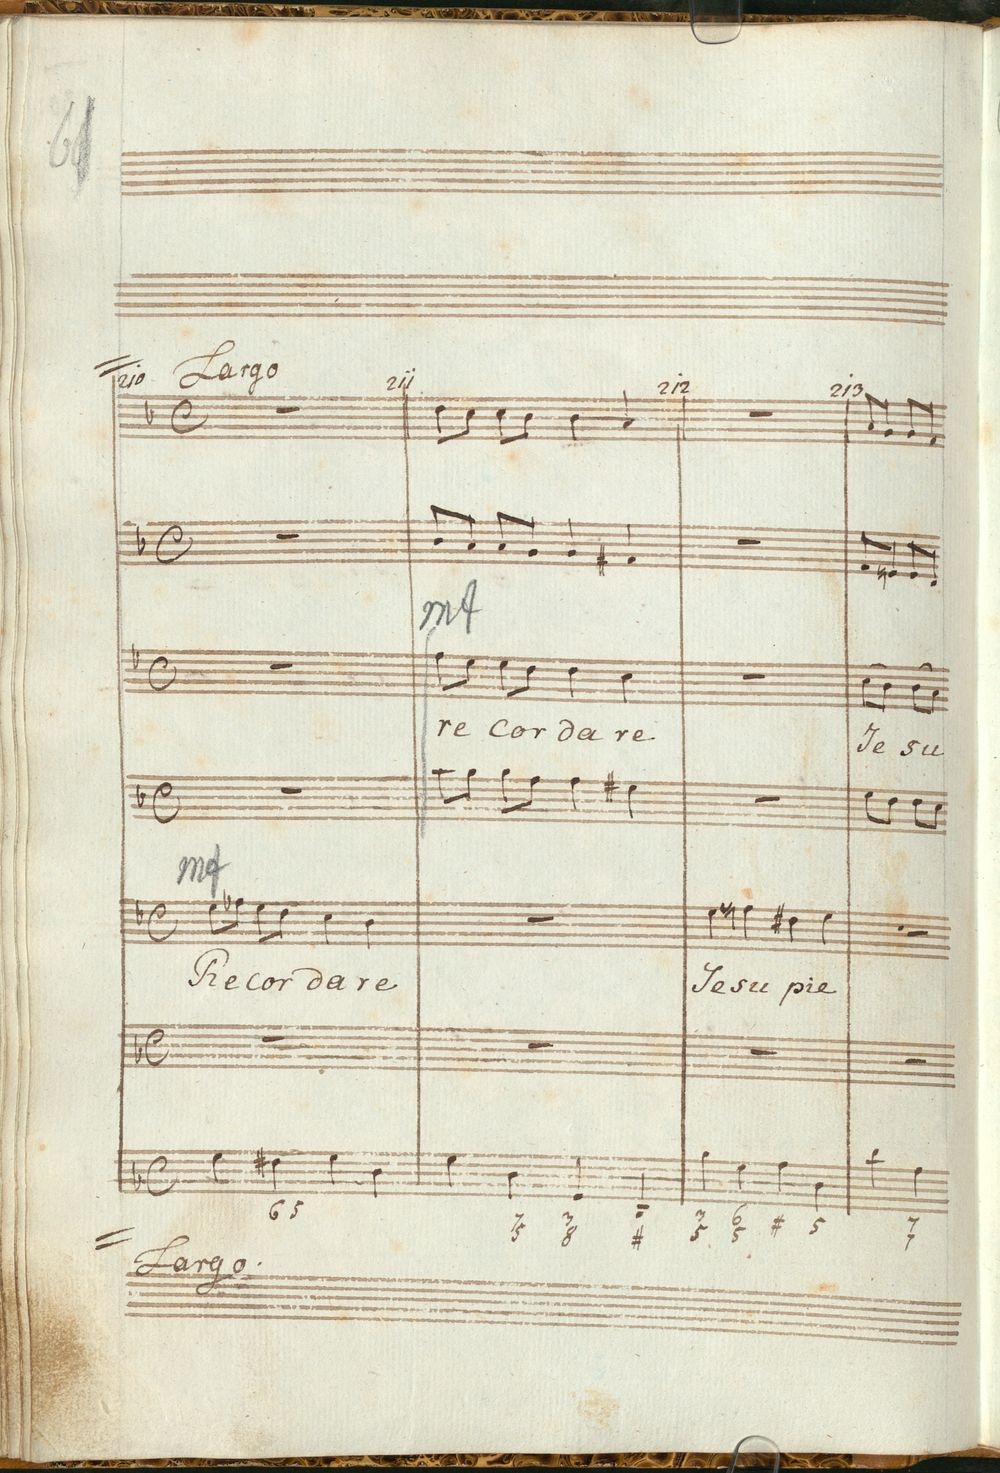 61
210 Largo 211 212 213
mf
re cor da re Je su
mf
Recordare Jesu pie
6 5 7 5 3 8 # 3 5 6 5 # 5 7 7
Largo.